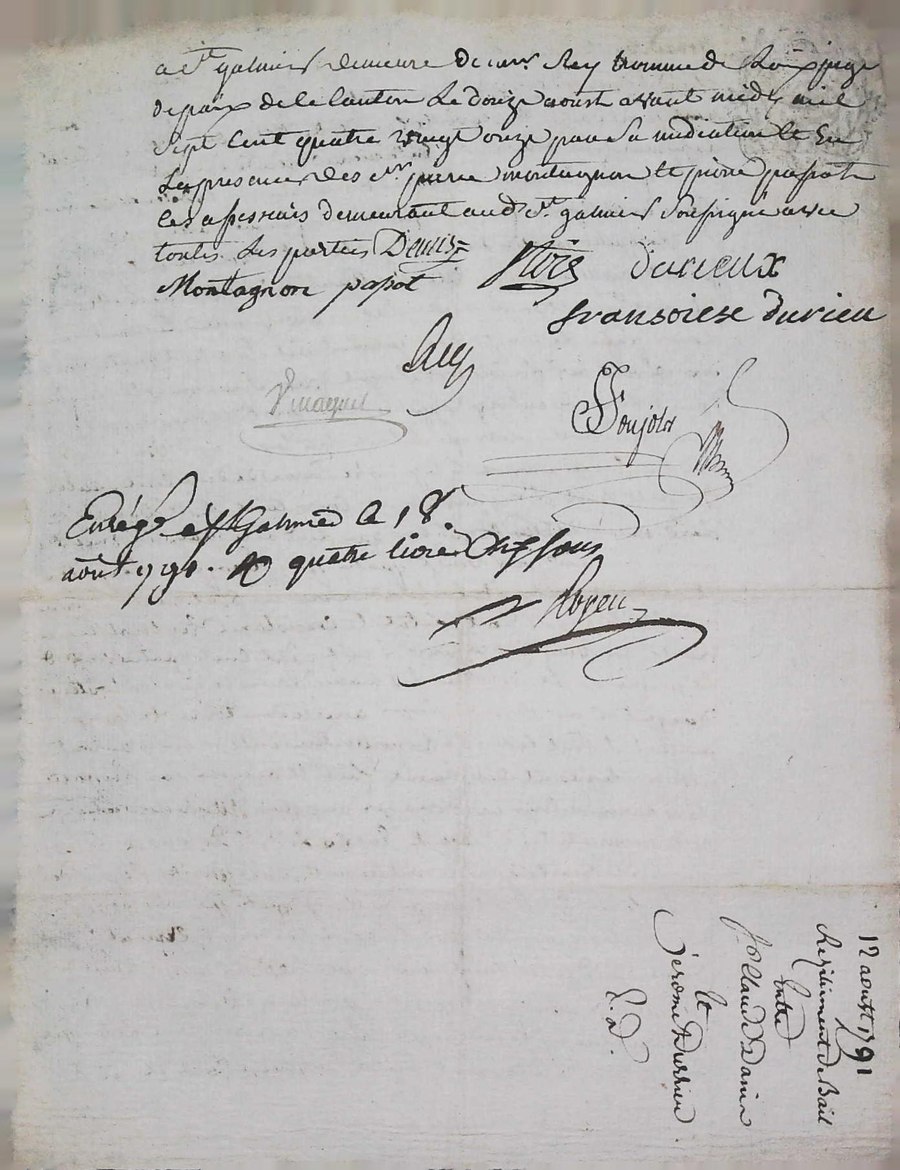 a St galmier demeure de mr Rey homme de Loix juge
de paix de le Canton Le douze aoust avant midy mil
Sept Cent quatre vingt onze par Sa mediation et En
Les presences des srs pierre montagnon et pierre papot
les assesseurs demeurant aud. St galmier Soussigné avec
toutes Les parties Denis
durieux
Montagnon papot
fransoiese durieu
Rey
Soujols
Enrégé a St Galmier le 18
août 1791. R quatre livres Cinq sous
12 aoust 1791
Resiliement de Bail
Entre
Claude Denis
et
Jerome Durrieu
E. D.